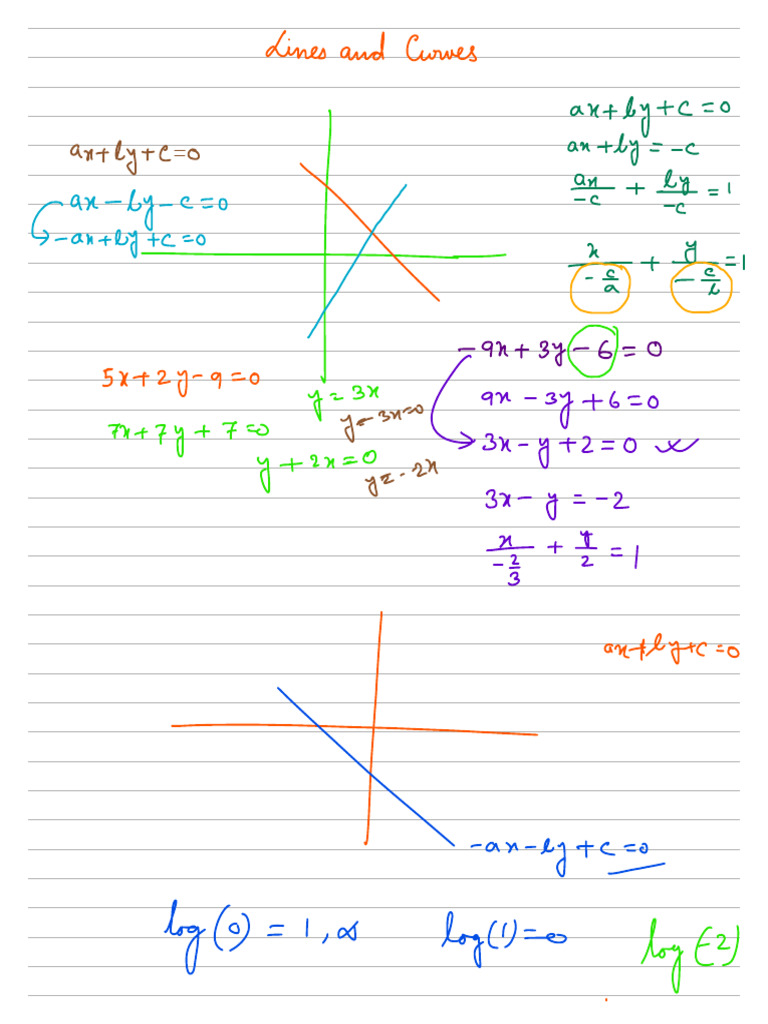 Lines and Curves
ax+by+c=0
ax-by-c=0
-ax+by+c=0
ax+by+c=0
ax+by=-c
ax/-c + by/-c =1
x/(-c/a) + y/(-c/b) =1
5x+2y-9=0
7x+7y+7=0
y=3x
y-3x=0
y+2x=0
y=-2x
-9x+3y-6=0
9x-3y+6=0
3x-y+2=0
3x-y=-2
x/(-2/3) + y/2 =1
ax+by+c=0
-ax-by+c=0
log(0)=1,∞
log(1)=0
log(-2)